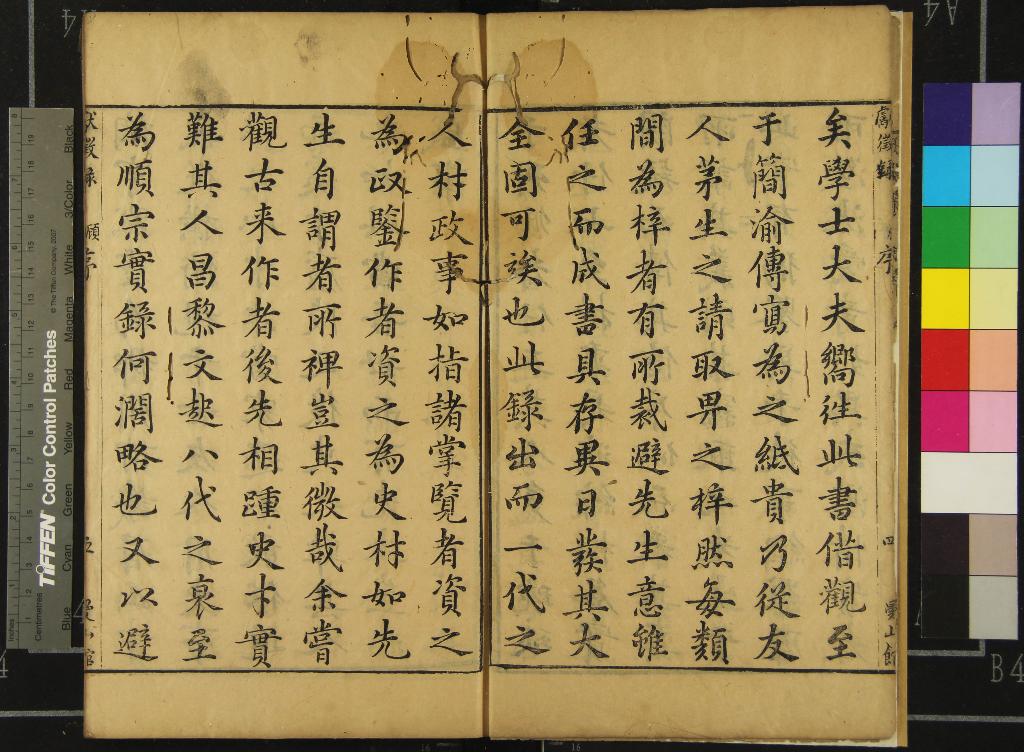 矣學士大夫嚮往此書借觀至
于簡渝傳寫為之紙貴乃従友
人茅生之請取畀之梓然每類
間為梓者有所裁避先生意雖
任之而成書具存異日發其大
全固可竢也此錄出而一代之
人材政事如指諸掌覽者資之
為政鑒作者資之為史材如先
生自謂者所裨豈其微哉余嘗
觀古来作者後先相踵史才實
難其人昌黎文起八代之衰至
為順宗實錄何濶略也又以避
獻徵錄
序
四
曼山館
顧序
五
TIFFEN Color Control Patches
© The Tiffen Company, 2007
Inches
Centimetres
Blue
Cyan
Green
Yellow
Red
Magenta
White
3/Color
Black
B4
A4